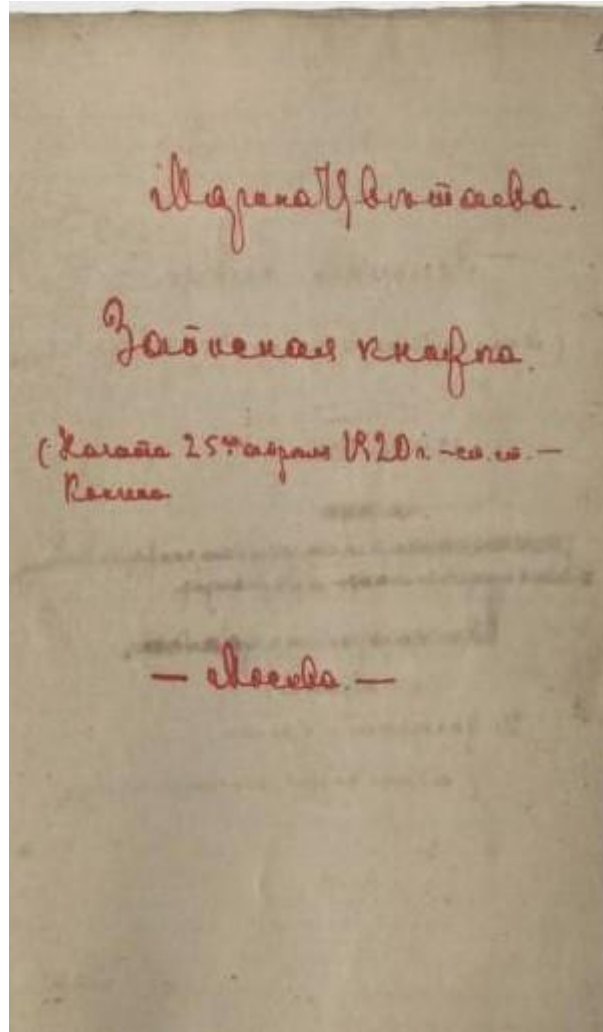 Марина Цвѣтаева.
Записная книжка.
(Начата 25го апрѣля 1920 г. – ст. ст. –
— Москва. —